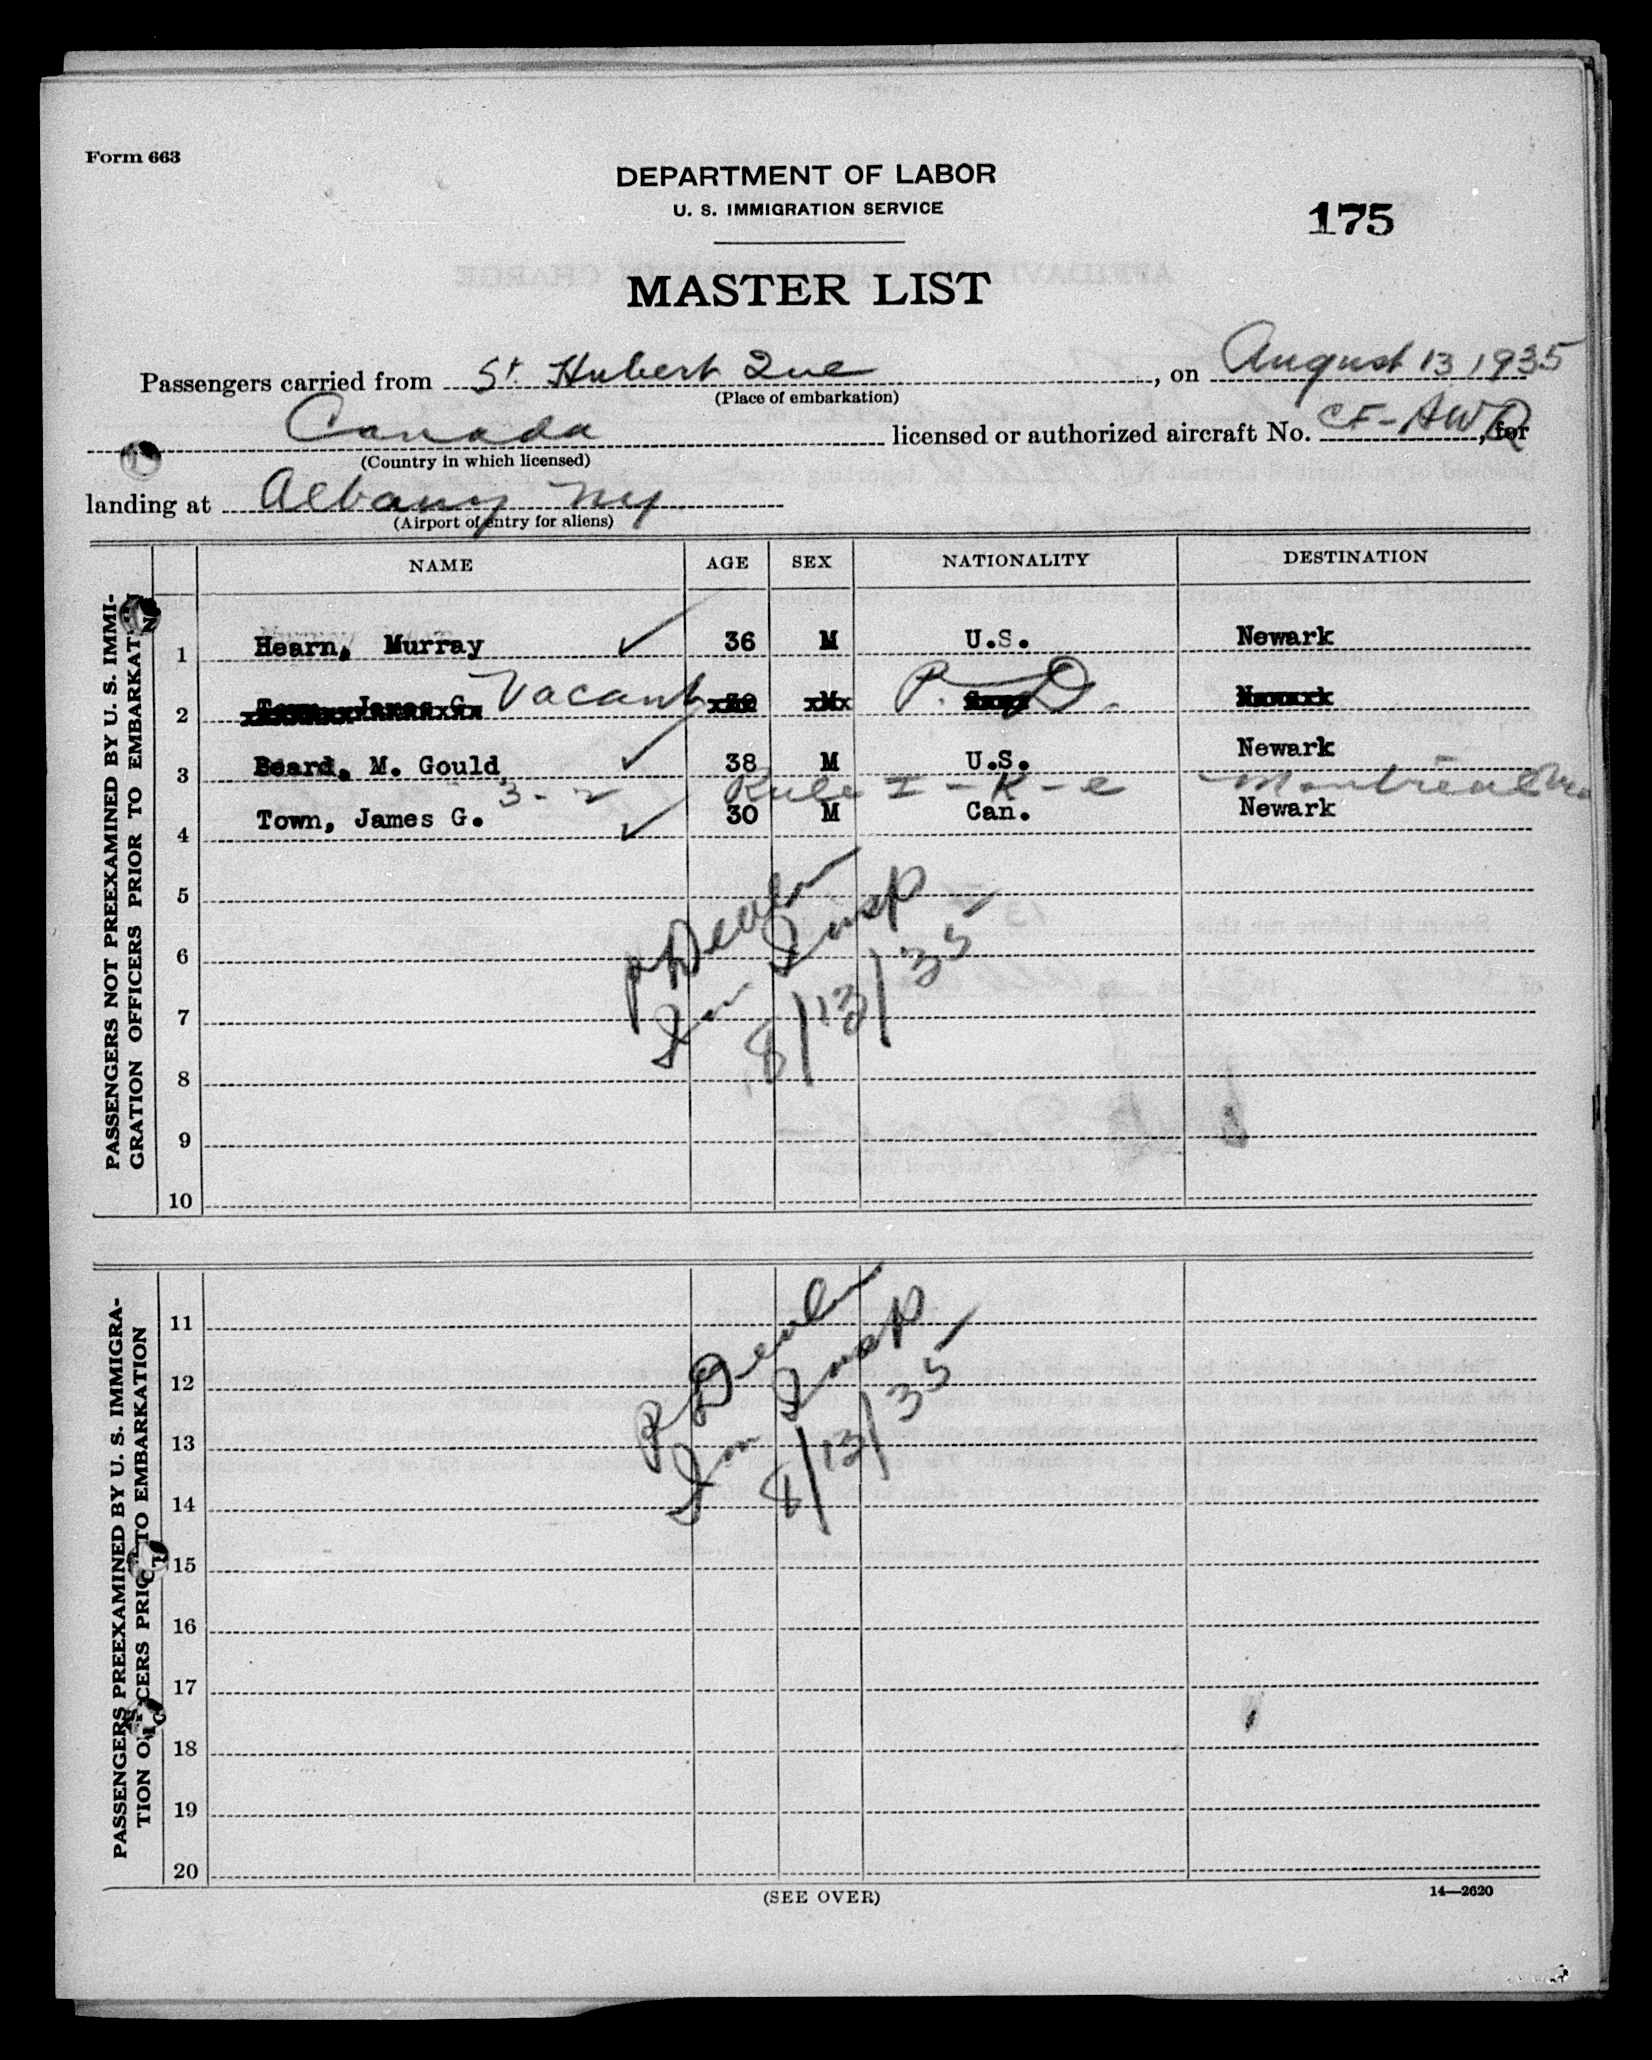 Form 663
DEPARTMENT OF LABOR
U. S. IMMIGRATION SERVICE
175
MASTER LIST
Passengers carried from St. Hubert Que, on August 13, 1935
(Place of embarkation)
Canada licensed or authorized aircraft No. CF-AWR, for
(Country in which licensed)
landing at Albany NY.
(Airport of entry for aliens)
NAME AGE SEX NATIONALITY DESTINATION
PASSENGERS NOT PREEXAMINED BY U. S. IMMI-
GRATION OFFICERS PRIOR TO EMBARKATION
1 Hearn, Murray ✓ 36 M U.S. Newark
2 Town, James G. Vacant 30 M P. D. Newark
3 Beard, M. Gould ✓ 38 M U.S. Newark
3-2 Rule I-K-e Montreal
4 Town, James G. ✓ 30 M Can. Newark
5
6
7
8
9
10
P Devlin
Imm Insp
8/13/35
PASSENGERS PREEXAMINED BY U. S. IMMIGRA-
TION OFFICERS PRIOR TO EMBARKATION
11
12
13
14
15
16
17
18
19
20
P Devlin
Imm Insp
8/13/35
(SEE OVER)
14—2620